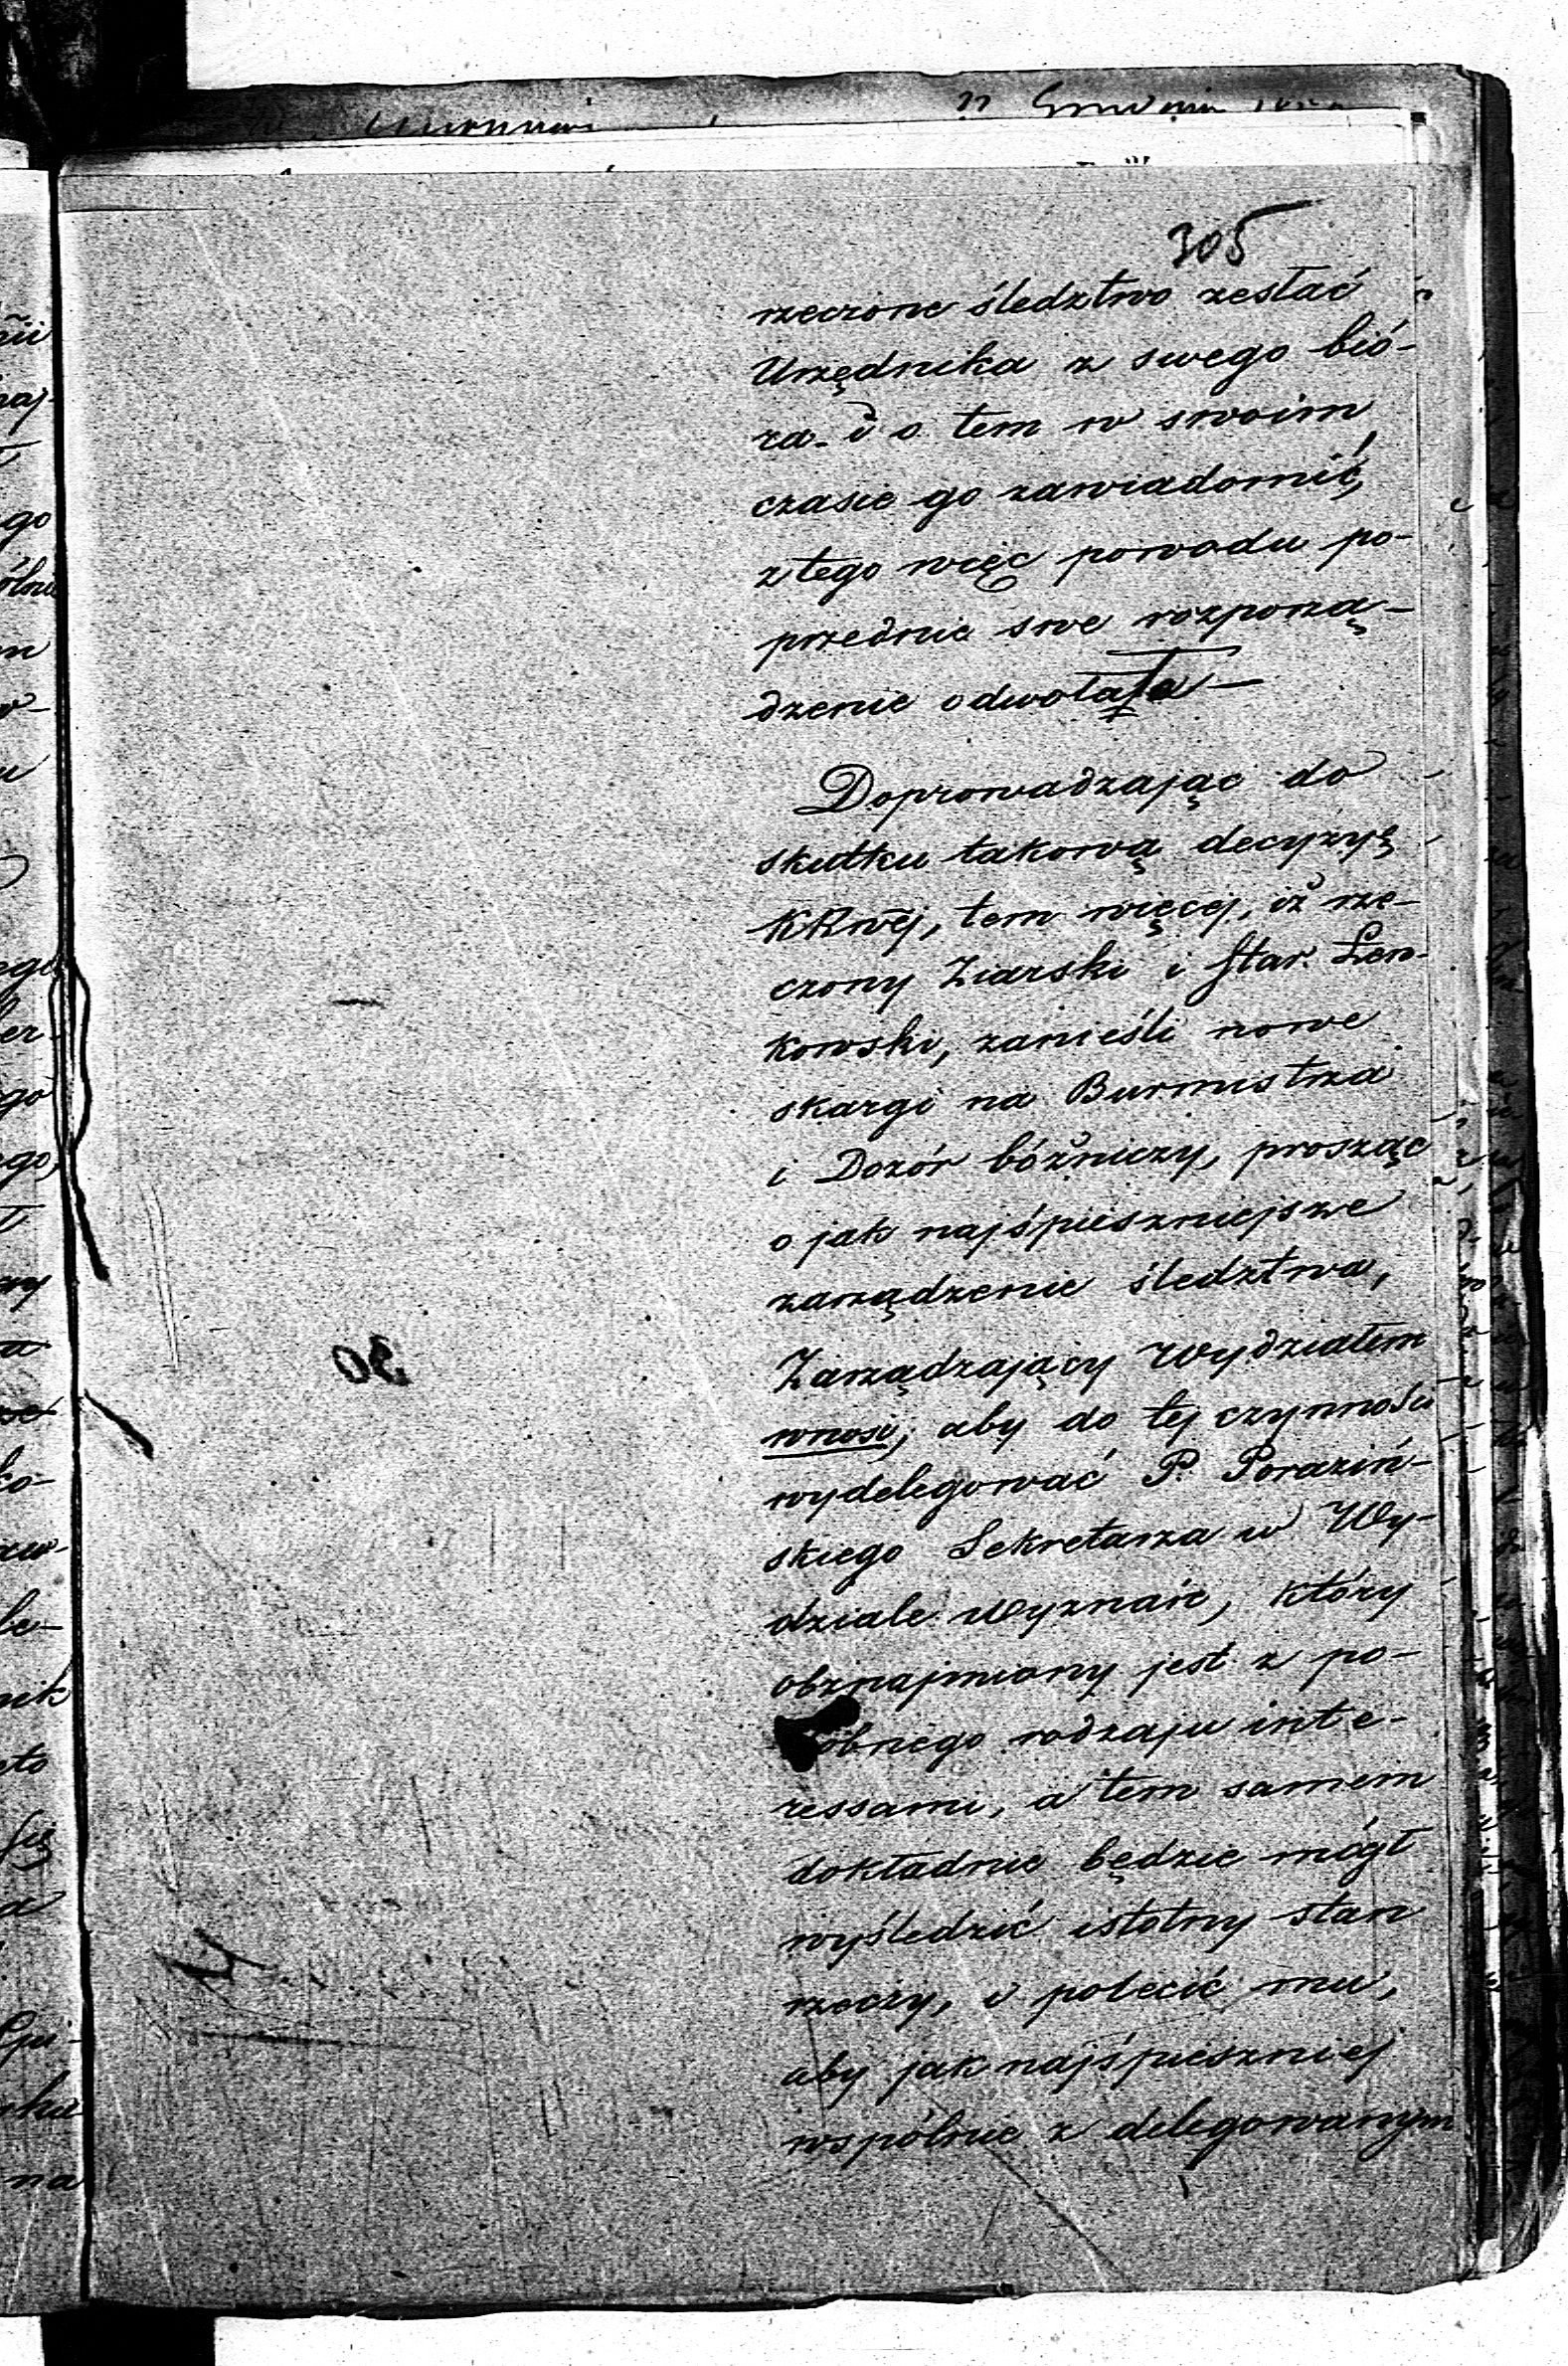 305
rzeczone śledztwo zesłać
Urzędnika z swego bió-
ra. i o tem w swoim
czasie go zawiadomić,
z tego więc powodu po-
przednie swe rozporzą-
dzenie odwołała —
Doprowadzając do
skutku takową decyzyę
KRwéj, tem więcéj, iż rze-
czony Ziarski i Star. Len-
kowski, zanieśli nowe
skargi na Burmistrza
i Dozór bóżniczy, prosząc
o jak najśpieszniejsze
zarządzenie śledztwa,
Zarządzający Wydziałem
wnosi, aby do tej czynności
wydelegować P. Poraziń-
skiego Sekretarza w Wy-
dziale Wyznań, który
obznajmiony jest z po-
dobnego rodzaju inte-
ressami, a tem samem
dokładnie będzie mógł
wyśledzić istotny stan
rzeczy, i polecić mu,
aby jak najśpieszniej
wspólnie z delegowanym